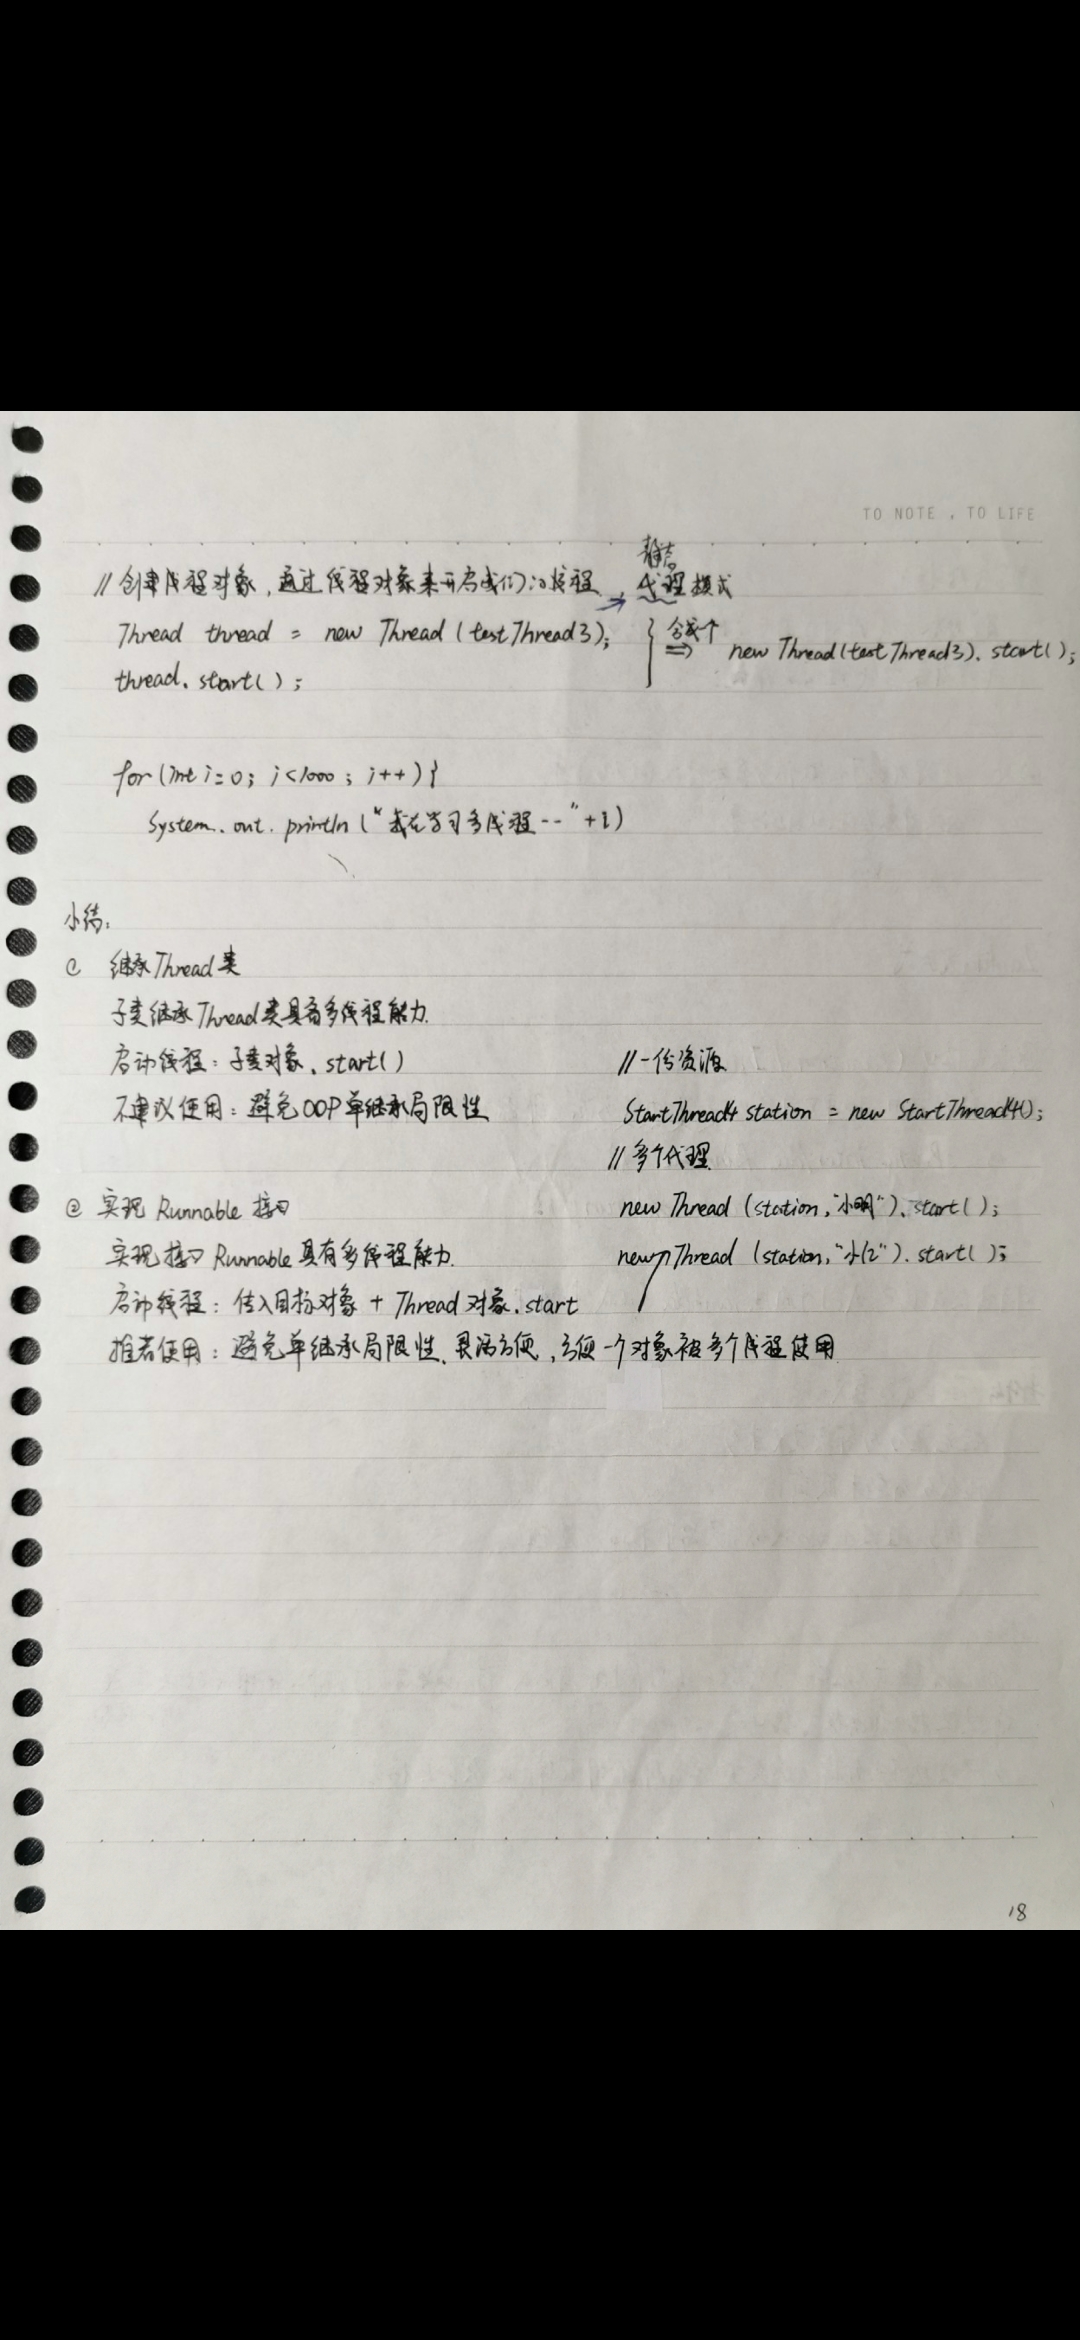 TO NOTE , TO LIFE
静态
//创建线程对象,通过线程对象来开启我们的线程, 代理模式
Thread thread = new Thread (testThread3); 合成一个
⇒ new Thread(testThread3). start();
thread. start( );
for (int i=0; i<1000; i++){
System. out. println ("我在学习多线程--"+i)
小结:
① 继承Thread类
子类继承Thread类具有多线程能力.
启动线程: 子类对象. start()
不建议使用: 避免OOP单继承局限性
② 实现 Runnable 接口
实现接口Runnable具有多线程能力.
启动线程: 传入目标对象 + Thread对象.start
推荐使用: 避免单继承局限性、灵活方便,方便一个对象被多个线程使用
//一份资源
StartThread4 station = new StartThread4();
//多个代理
new Thread (station,"小明"). start( );
new Thread (station,"小红"). start( );
18